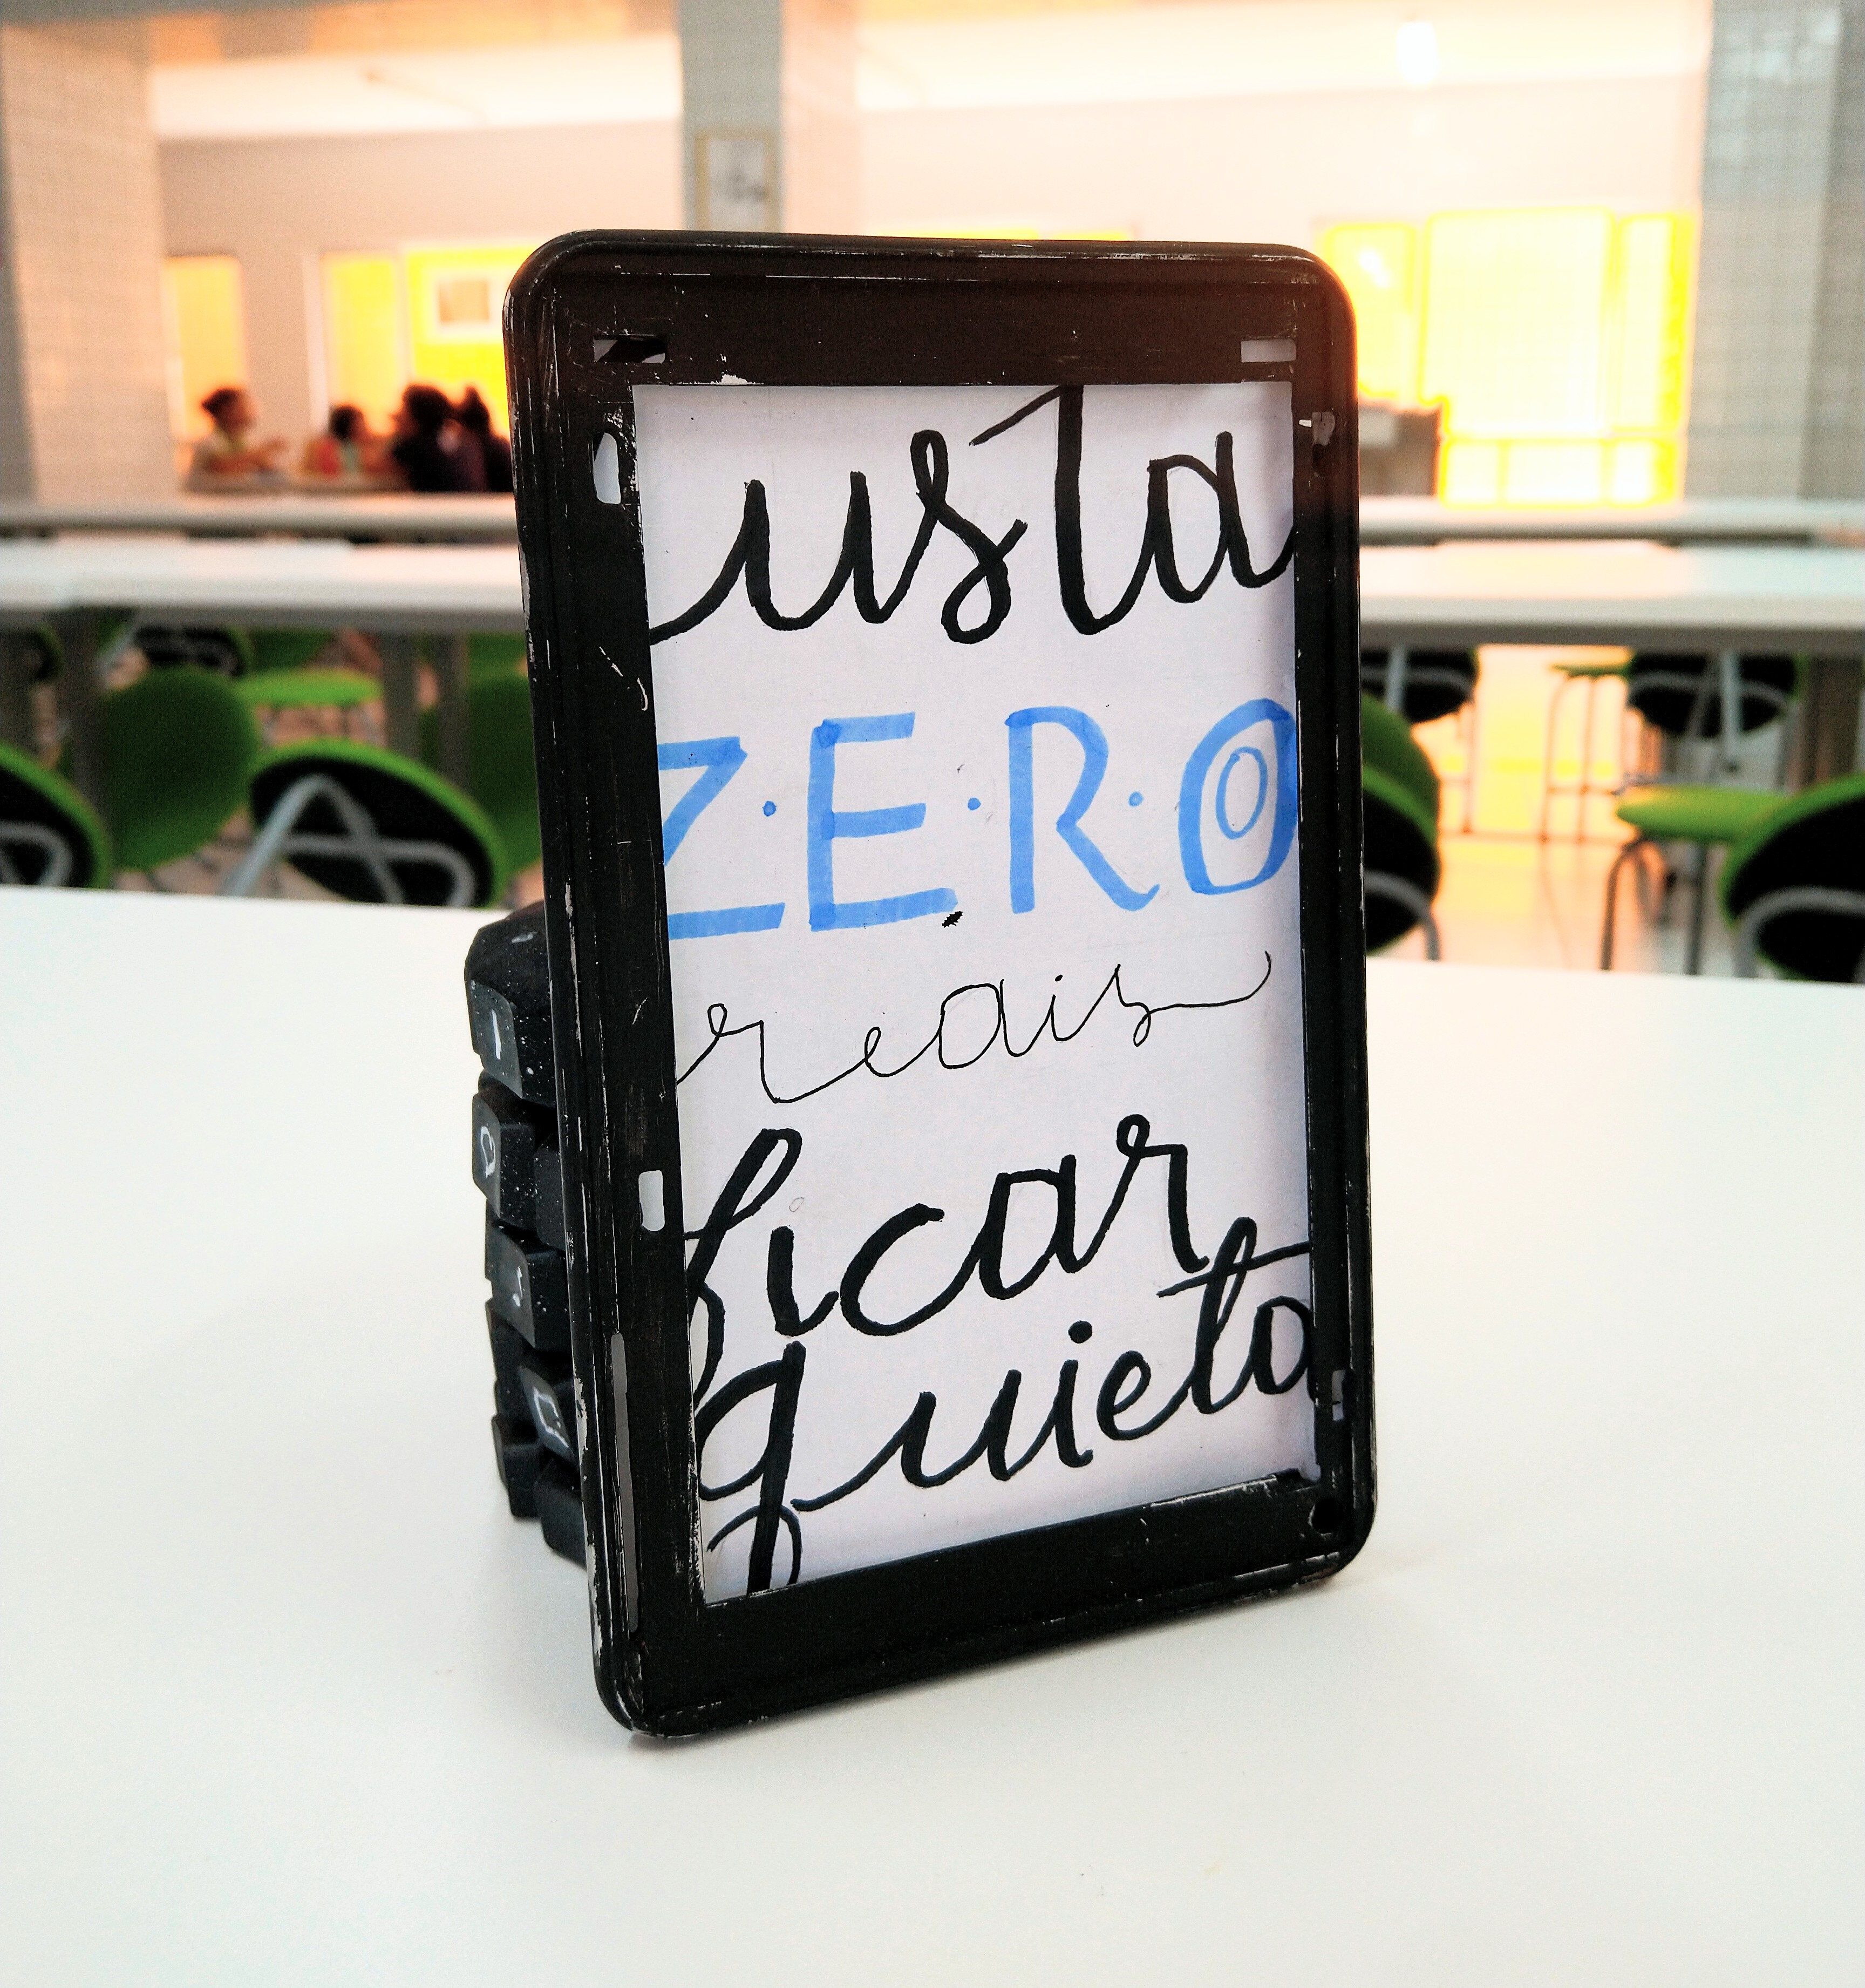 usta
Z·E·R·O
reais
ficar
quieto